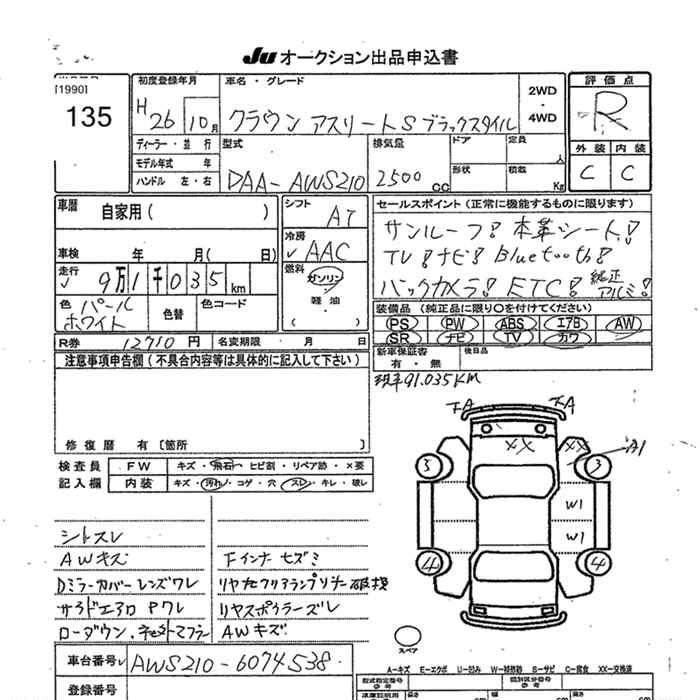 Ju オークション出品申込書
[1990]
135
初度登録年月
H 26 10月
車名・グレード
クラウン アスリートS ブラックスタイル
2WD
・
4WD
評価点
R
外装 内装
C C
ディーラー・並行
モデル年式 年
ハンドル 左・右
型式
DAA-AWS210
排気量
2500 CC
ドア 定員 人
形状 積載 Kg
車歴 自家用( )
車検 年 月( 日)
走行 9万1千035km
色 パールホワイト 色替 色コード
シフト AT
冷房 AAC
燃料 ガソリン
・
軽油
・
( )
セールスポイント(正常に機能するものに限ります)
サンルーフ! 本革シート!
TV!ナビ! Bluetooth!
バックカメラ! ETC! 純正アルミ!
装備品(純正品に限り○を付けてください)
PS PW ABS エアB AW
SR ナビ TV カワ
R券 12710円 名変期限 ・ 月 日
新車保証書 有・無
後日品
注意事項申告欄(不具合内容等は具体的に記入して下さい)
現車91.035KM
修復歴 有〔箇所 〕
検査員 FW キズ・飛石・ヒビ割・リペア跡・×要
記入欄 内装 キズ・汚れ・コゲ・穴・スレ・キレ・破レ
XX XX A1
5 3
W1
W1
4 4
シトスレ
AWキズ
Dミラーカバー レンズワレ
サイドエアロ Pワレ
ローダウン、社外マフラー
Fインナー セズミ
リヤスポイラーズレ
AWキズ
スペア
車台番号 AWS210-6074538
A-キズ E-エクボ U-凹み W-補修跡 S-サビ C-腐食 XX-交換済
登録番号
型式指定番号